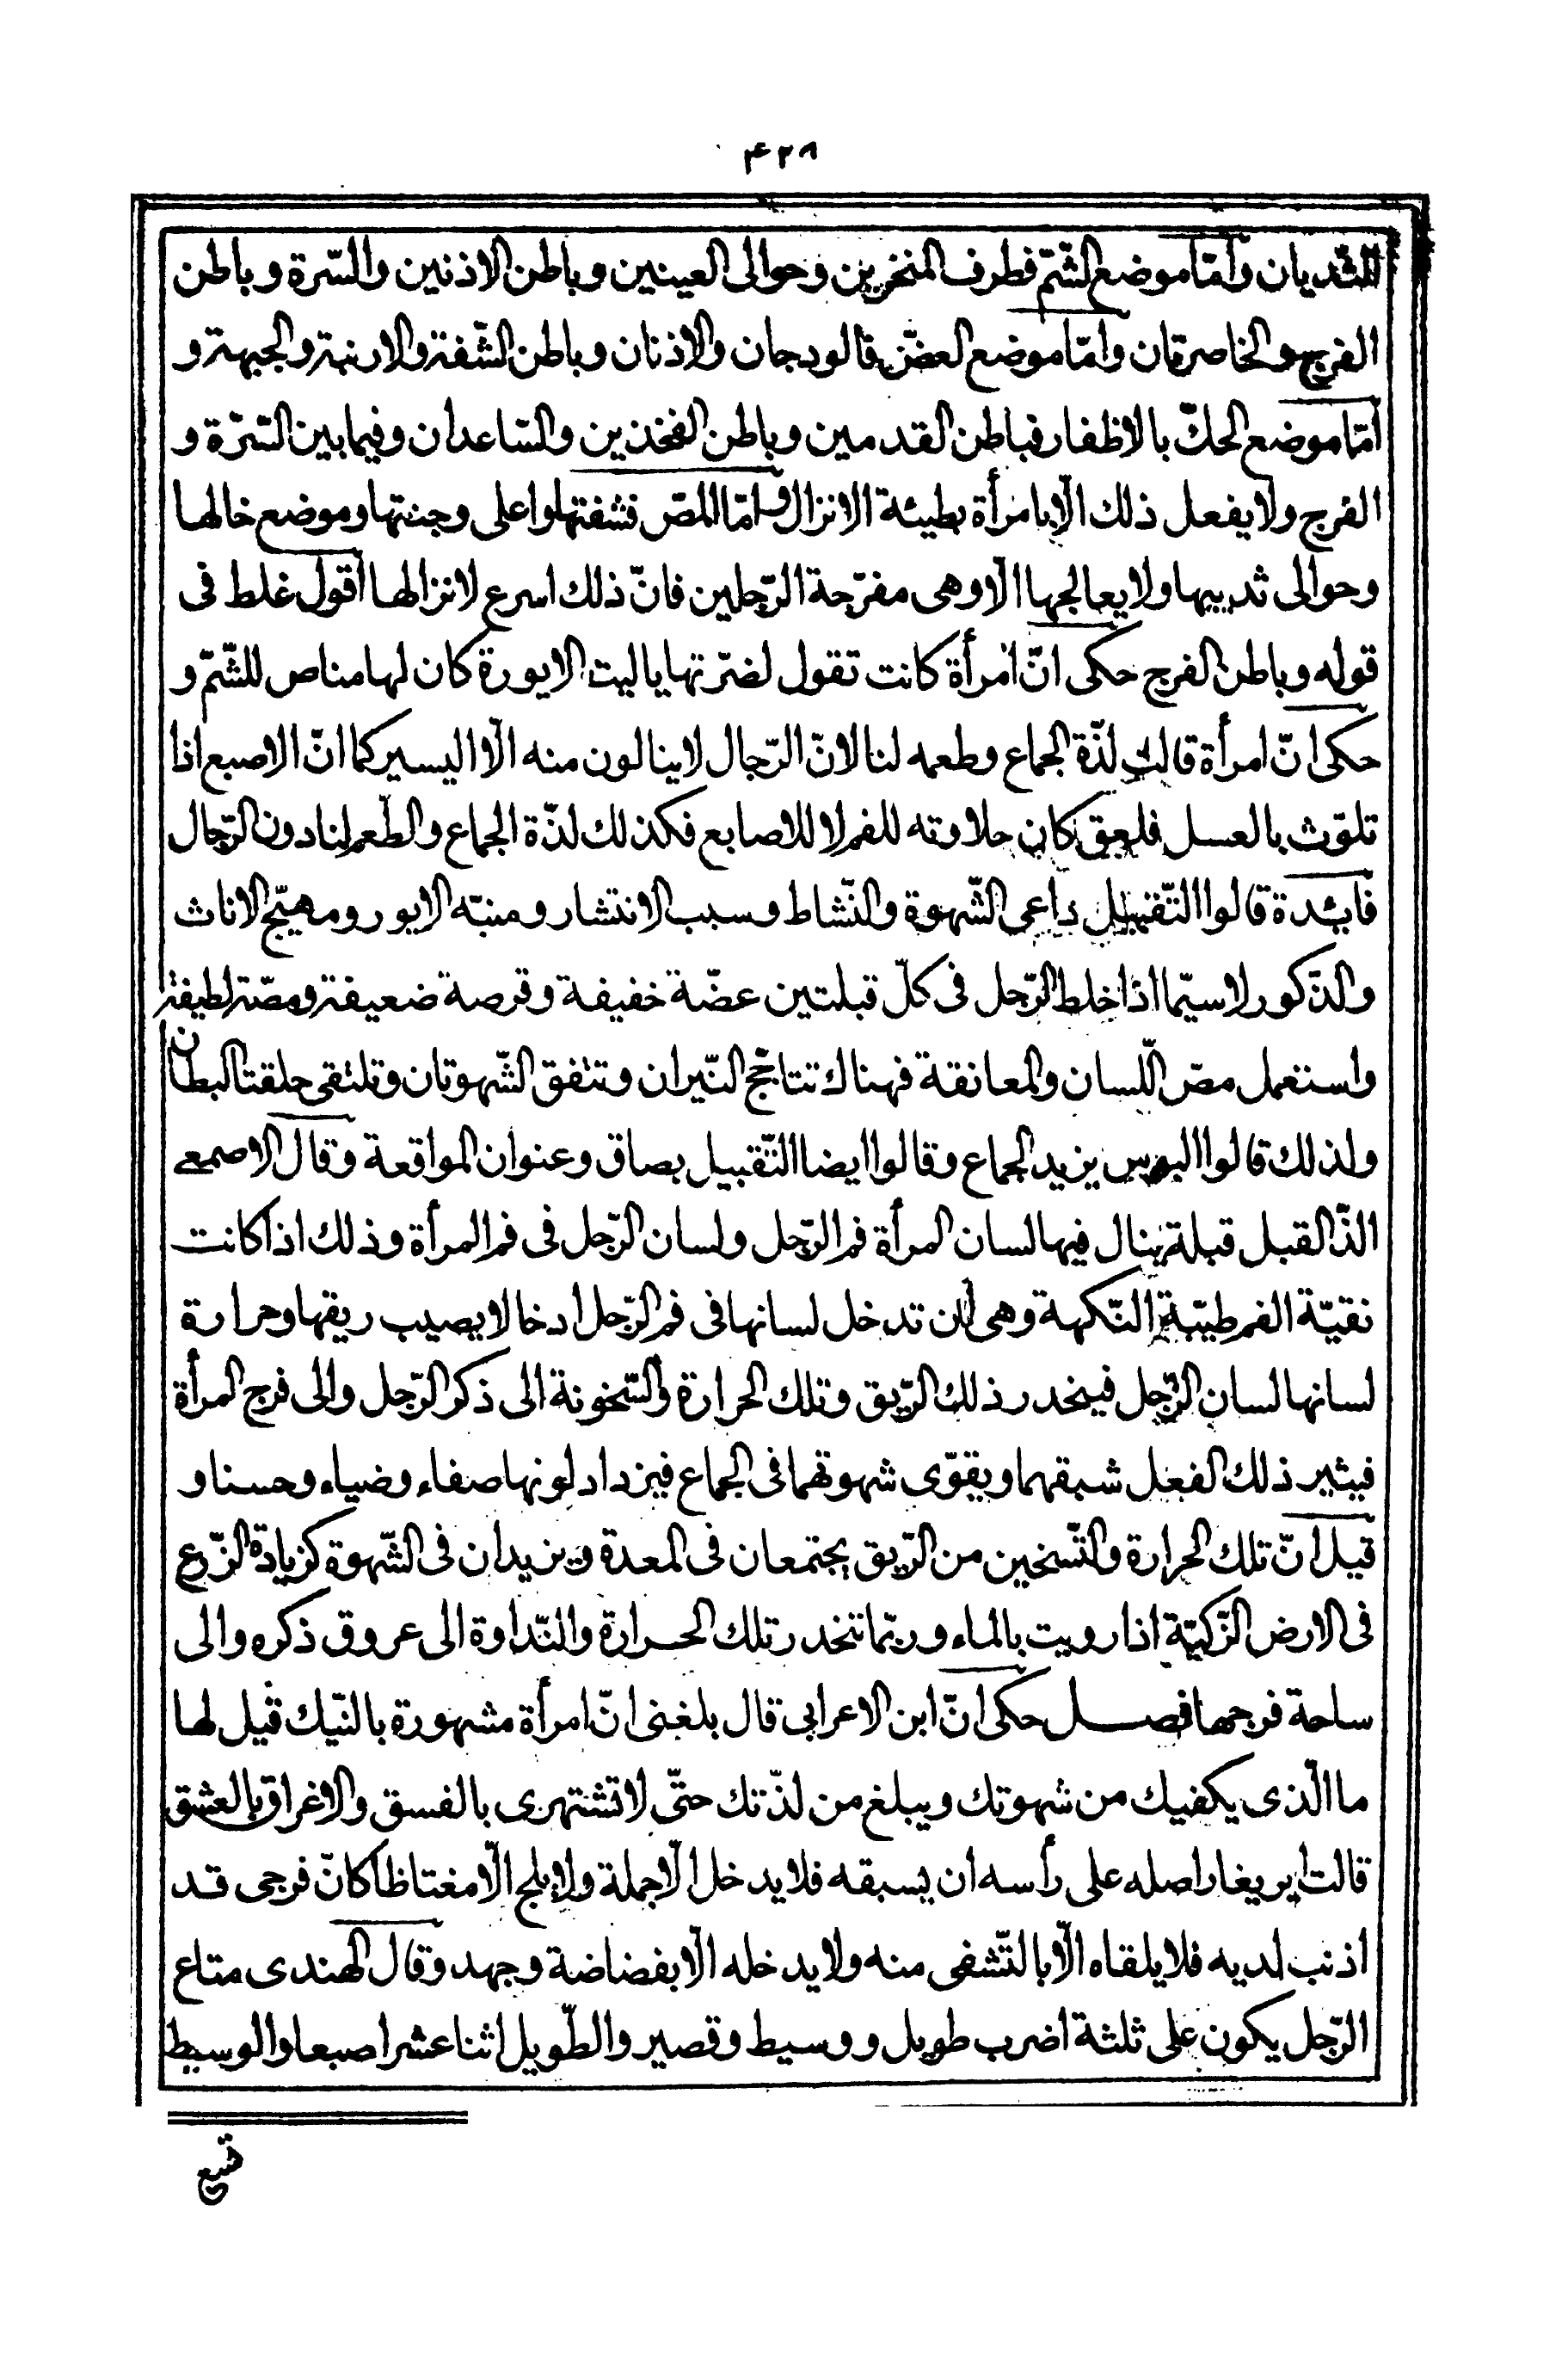 ۴۲۸
الثّديان وأمّا موضع الشّمّ فطرف المنخرين وحوالى العينين وباطن الاذنين والسّرة وباطن
الفرج والخاصرتان وامّا موضع العضّ فالودجان والاذنان وباطن الشّفة والارنبة والجبهة و
امّا موضع الحكّ بالاظفار فباطن القدمين وباطن الفخذين والسّاعدان وفيما بين السّرّة و
الفرج ولا يفعل ذلك الّا بامرأة بطيئة الانزال وامّا المصّ فشفتها واعلى وجنتها وموضع خالها
وحوالى ثدييها ولا يعالجها الّا وهى مفرّجة الرّجلين فانّ ذلك اسرع لانزالها اقول غلط فى
قوله وباطن الفرج حكى انّ امرأة كانت تقول لضرّتها ياليت الايورة كان لها مناص للشّمّ و
حكى انّ امرأة قالت لذّة الجماع وطعمه لنا لانّ الرّجال لا ينالون منه الّا اليسير كما انّ الاصبع اذا
تلوّث بالعسل فلعق كان حلاوته للفم لا للاصابع فكذلك لذّة الجماع والطّعم لنا دون الرّجال
فايئدة قالوا التّقبيل داعى الشّهوة والنّشاط وسبب الانتشار ومنبّه الايور ومهيّج الاناث
والذّكور لا سيّما اذا خلط الرّجل فى كلّ قبلتين عضّة خفيفة وقرصة ضعيفة ومصّة لطيفة
واستعمل مصّ اللّسان والمعانقة فهناك تتاجّج النّيران وتتفق الشّهوتان وتلتقى حلقتا البطان
ولذلك قالوا البوس يزيد الجماع وقالوا ايضا التّقبيل بصاق وعنوان المواقعة وقال الاصمعى
الذّ القبل قبلة ينال فيها لسان المرأة فم الرّجل ولسان الرّجل فى فم المرأة وذلك اذا كانت
نقيّة الفم طيّبة النّكهة وهى ان تدخل لسانها فى فم الرّجل ادخالا يصيب ريقها وحرارة
لسانها لسان الرّجل فينحدر ذلك الرّيق وتلك الحرارة والسّخونة الى ذكر الرّجل والى فرج المرأة
فيثير ذلك الفعل شبقهما ويقوّى شهوتهما فى الجماع فيزداد لونها صفاء وضياء وحسنا و
قيل انّ تلك الحرارة والتّسخين من الرّيق يجتمعان فى المعدة ويزيدان فى الشّهوة كزيادة الزّرع
فى الارض الزّكيّة اذا رويت بالماء وربّما تنحدر تلك الحرارة والنّداوة الى عروق ذكره والى
ساحة فرجها فصل حكى انّ ابن الاعرابى قال بلغنى انّ امرأة مشهورة بالنّيك قيل لها
ما الّذى يكفيك من شهوتك ويبلغ من لذّتك حتّى لا تشتهرى بالفسق والاغراق بالعشق
قالت اير يغار اصله على رأسه ان يسبقه فلا يدخل الّا جملة ولا يلج الّا مغتاظا كانّ فرجى قد
اذنب لديه فلا يلقاه الّا بالتّشفى منه ولا يدخله الّا بفضاضة وجهد وقال الهندى متاع
الرّجل يكون على ثلثة اضرب طويل ووسيط وقصير والطّويل اثنا عشر اصبعا والوسيط
تسع